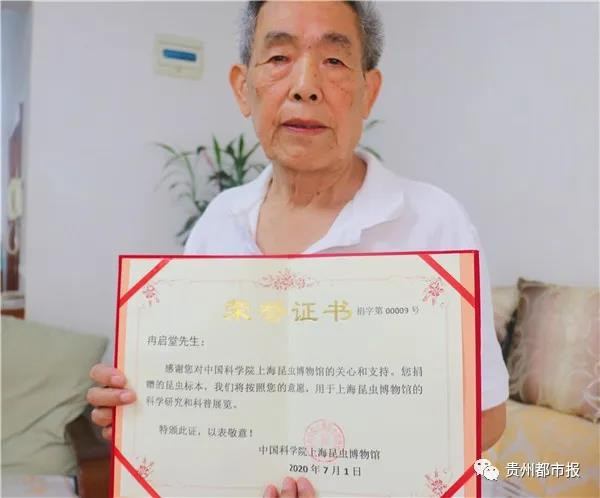 荣誉证书
捐字第 00009 号
冉启堂先生：
感谢您对中国科学院上海昆虫博物馆的关心和支持。您捐
赠的昆虫标本，我们将按照您的意愿，用于上海昆虫博物馆的
科学研究和科普展览。
特颁此证，以表敬意！
中国科学院上海昆虫博物馆
2020 年 7 月 1 日
贵州都市报